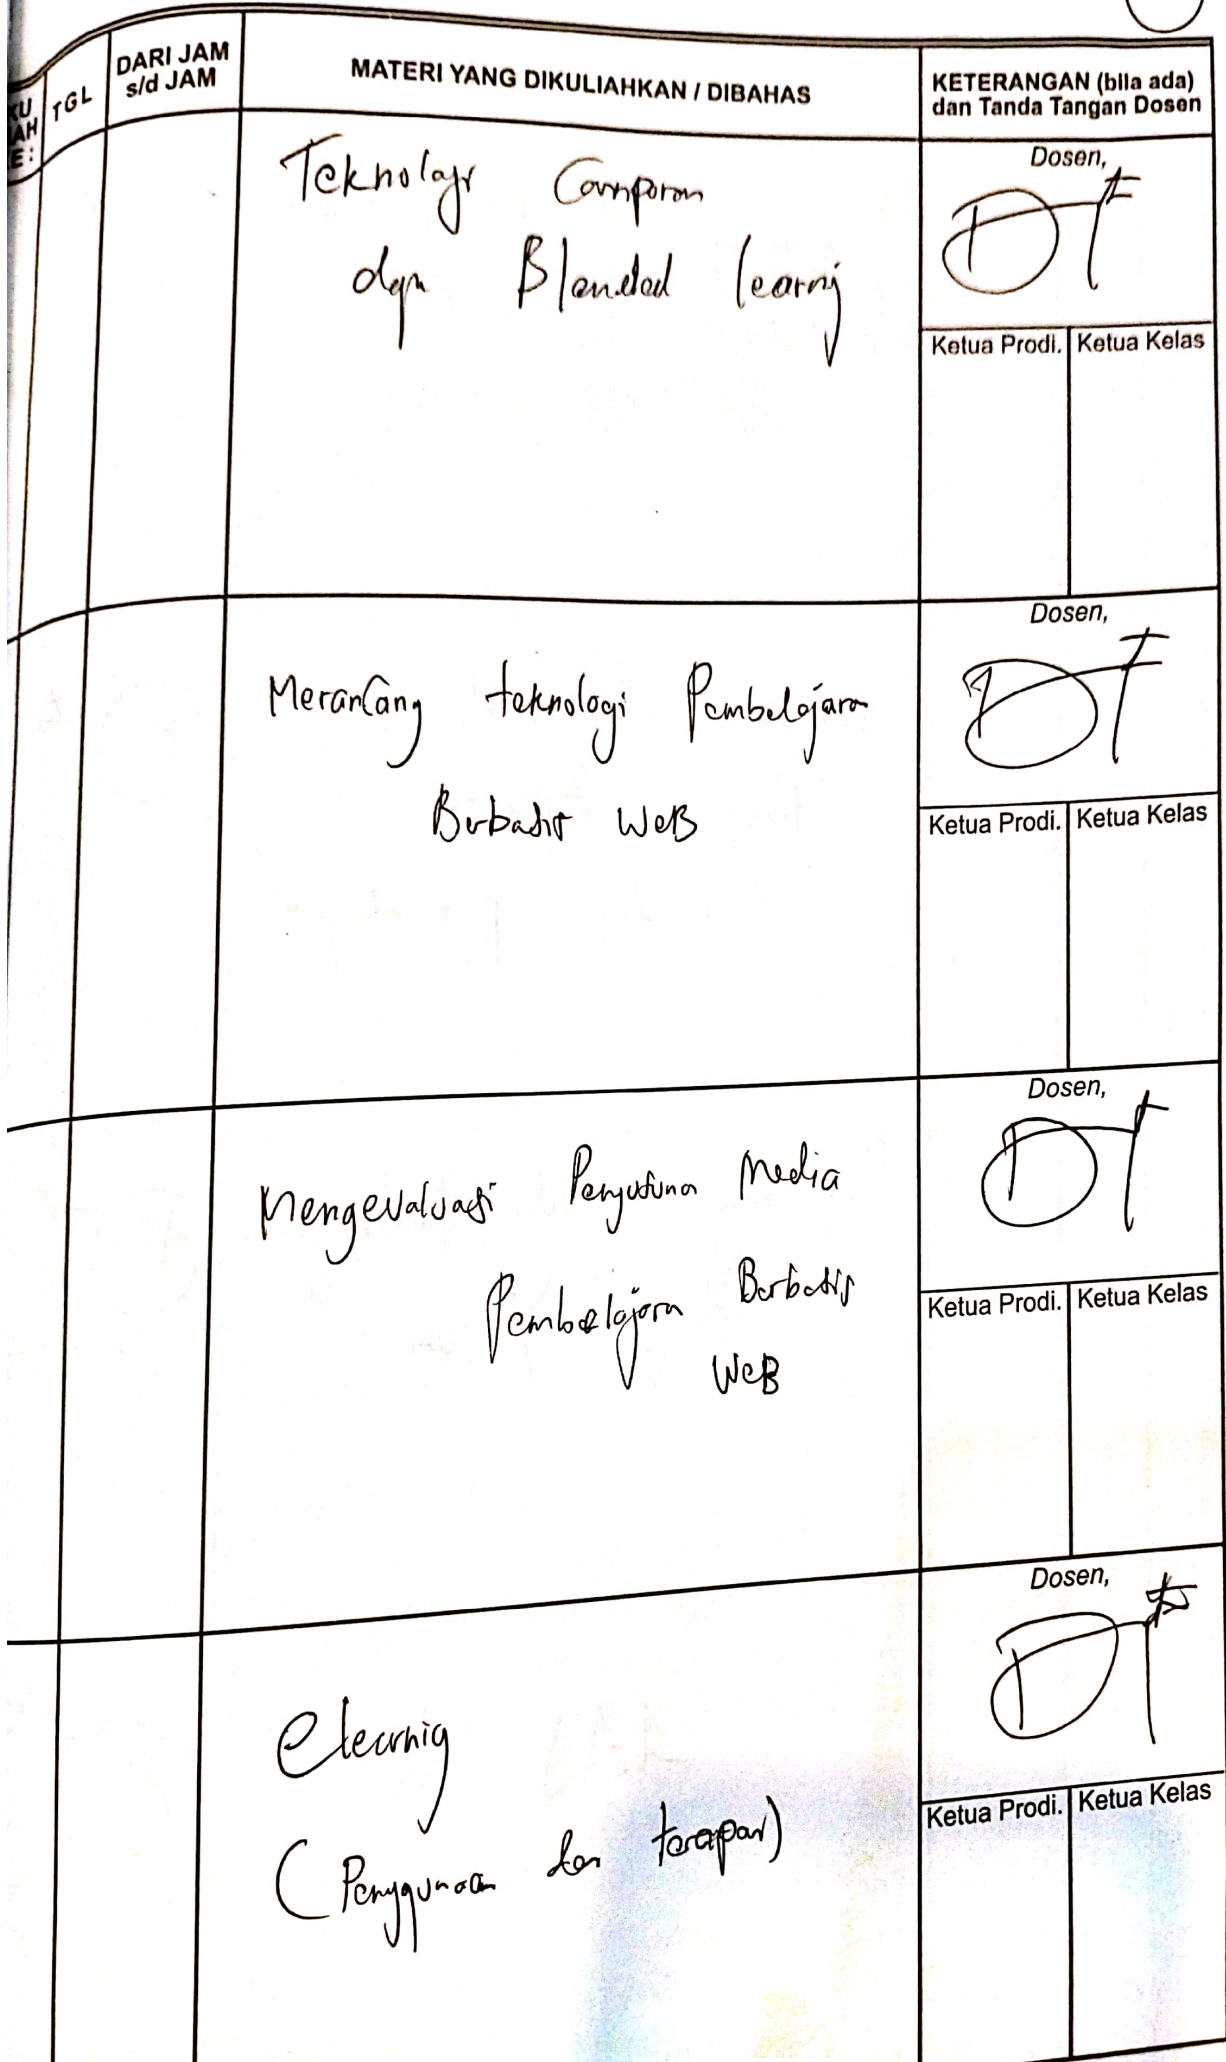 KU
AH
E:
TGL
DARI JAM
s/d JAM
MATERI YANG DIKULIAHKAN / DIBAHAS
KETERANGAN (bila ada)
dan Tanda Tangan Dosen
Teknologi Camporan
dgn Blended learnig
Dosen,
Ketua Prodi. Ketua Kelas
Merancang teknologi Pembelajaran
Berbasis WeB
Dosen,
Ketua Prodi. Ketua Kelas
Mengevaluasi Penyusunan Media
Pembelajaran Berbasis
WeB
Dosen,
Ketua Prodi. Ketua Kelas
elearnig
(Penggunaan dan terapan)
Dosen,
Ketua Prodi. Ketua Kelas